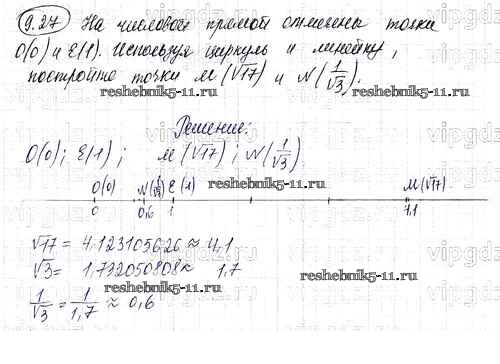 9.27 На числовой прямой отмечены точки
O(0) и E(1). Используя циркуль и линейку,
постройте точки M(√17) и N(1/√3).
reshebnik5-11.ru
reshebnik5-11.ru
Решение:
O(0); E(1); M(√17); N(1/√3).
reshebnik5-11.ru
O(0) N(1/√3) E(1) M(√17)
0 0,6 1 4,1
√17 = 4,123105626 ≈ 4,1
√3 = 1,732050808 ≈ 1,7
reshebnik5-11.ru
reshebnik5-11.ru
1/√3 = 1/1,7 ≈ 0,6